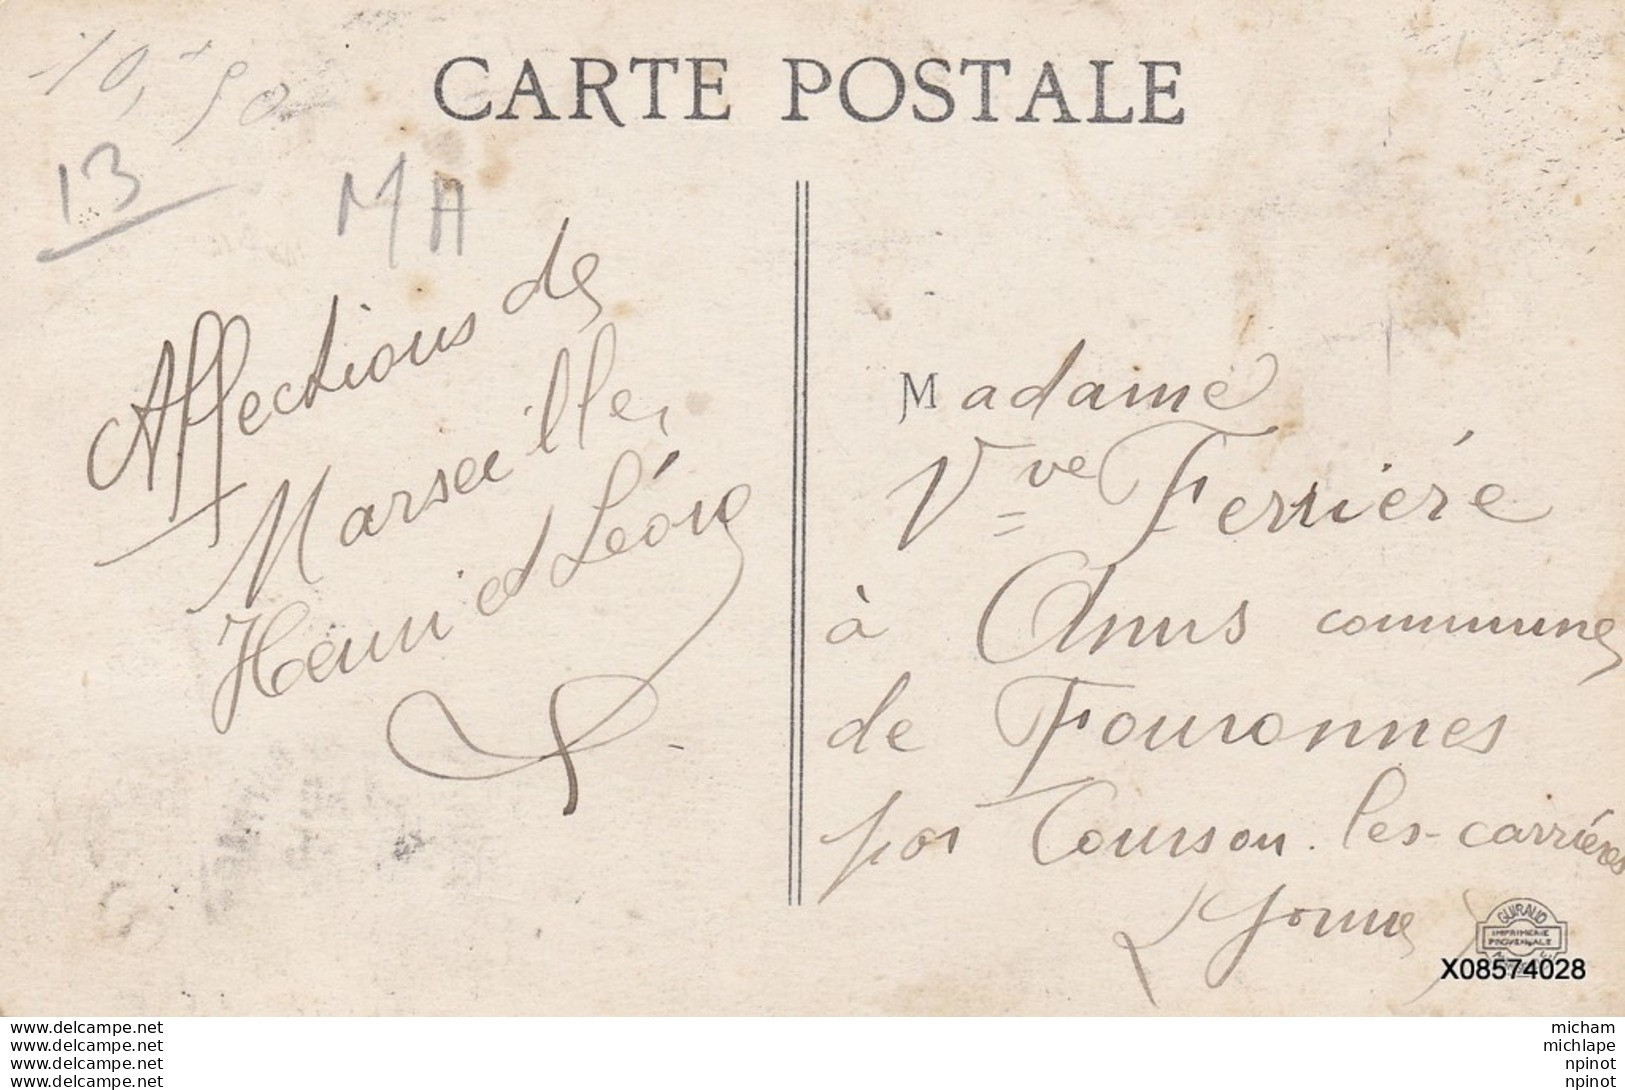 CARTE POSTALE
10,50
13
MA
Affections de
Marseille,
Henri et Léone
Madame
Vve Ferrière
à Anus commune
de Fouronnes
par Courson-les-carrières
Yonne
GUIRAUD
IMPRIMERIE
PROVENÇALE
X08574028
www.delcampe.net
www.delcampe.net
www.delcampe.net
www.delcampe.net
micham
michlape
npinot
npinot